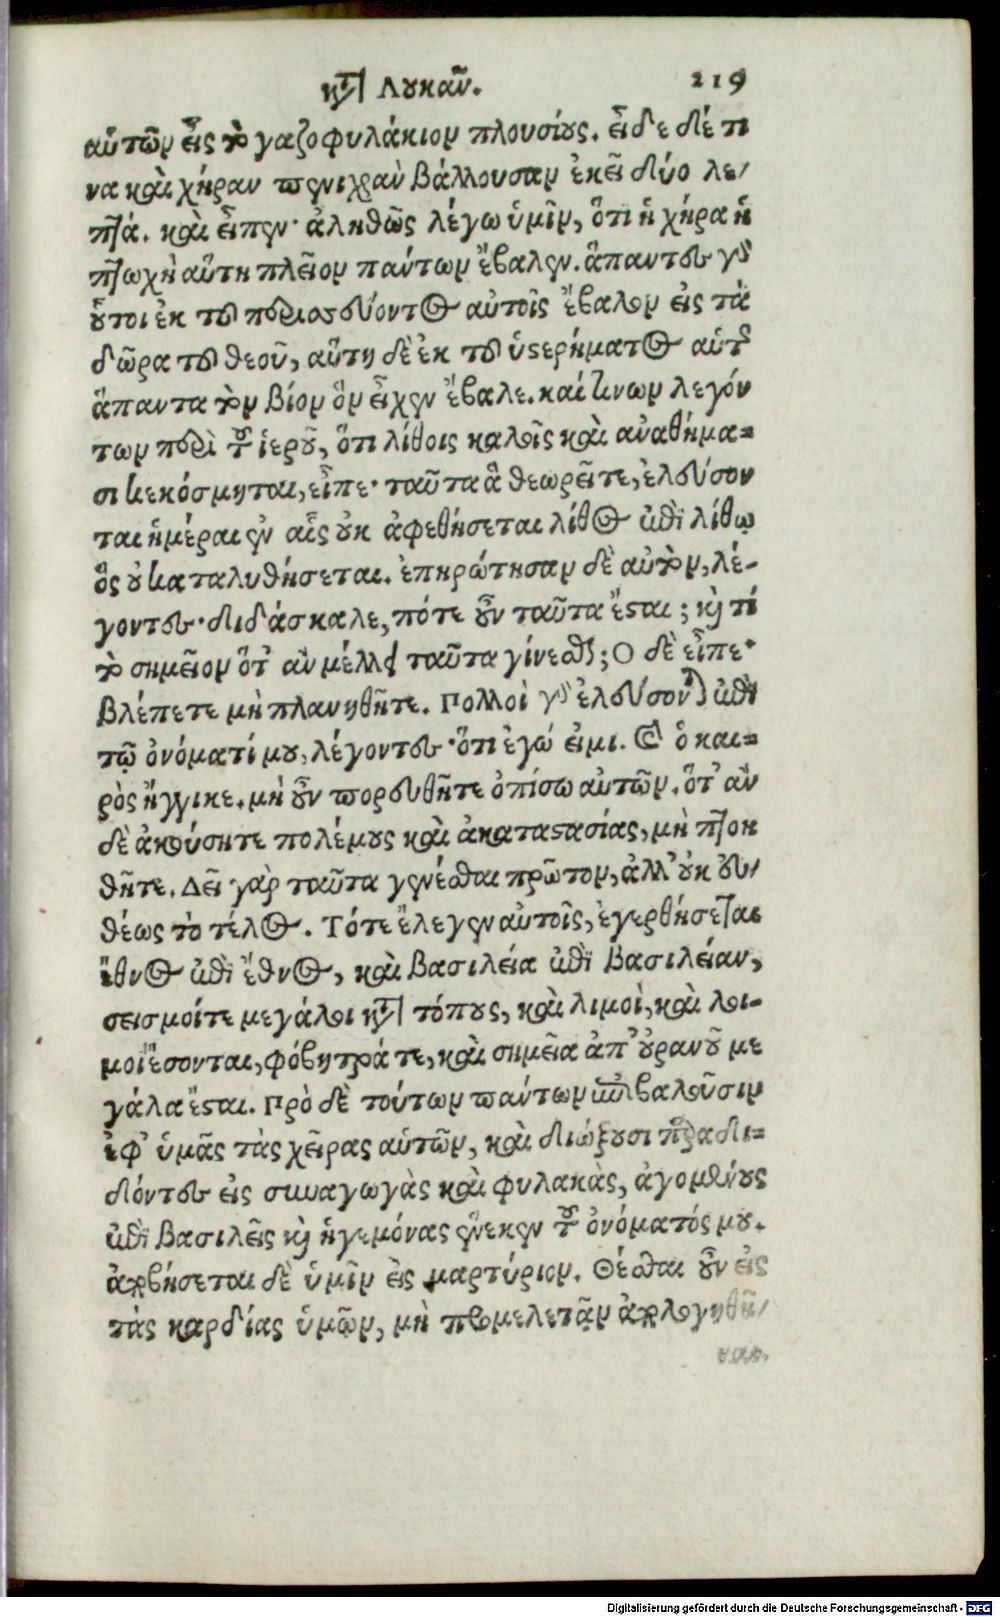 κτ Λουκᾶν. 219
αὑτῶν εἰς τὸ γαζοφυλάκιον πλουσίους. εἶδε δέ τι
να καὶ χήραν πενιχρὰν βάλλουσαν ἐκεῖ δύο λε/
πτά. καὶ εἶπεν· ἀληθῶς λέγω ὑμῖν, ὅτι ἡ χήρα ἡ
πτωχὴ αὕτη πλεῖον πάντων ἔβαλεν. ἅπαντες γὸ
οὗτοι ἐκ τοῦ περισσεύοντος αὐτοῖς ἔβαλον εἰς τὰ
δῶρα τοῦ θεοῦ, αὕτη δὲ ἐκ τοῦ ὑστερήματος αὑτῆς
ἅπαντα τὸν βίον ὃν εἶχεν ἔβαλε. καί τινων λεγόν
των περὶ τοῦ ἱεροῦ, ὅτι λίθοις καλοῖς καὶ αναθήμα=
σι κεκόσμηται, εἶπε· ταῦτα ἃ θεωρεῖτε, ἐλεύσον
ται ἡμέραι ἐν αἷς οὐκ ἀφεθήσεται λίθος ἐπὶ λίθῳ
ὃς οὐ καταλυθήσεται. ἐπηρώτησαν δὲ αὐτὸν, λέ-
γοντες· διδάσκαλε, πότε οὖν ταῦτα ἔσται; καὶ τί
τὸ σημεῖον ὅτ' ἂν μέλλῃ ταῦτα γίνεσθαι; Ο δὲ εἶπε·
βλέπετε μὴ πλανηθῆτε. Πολλοὶ γὸ ἐλεύσονται ἐπὶ
τῷ ὀνόματί μου, λέγοντες· ὅτι ἐγώ εἰμι. Καὶ ὁ και=
ρὸς ἤγγικε. μὴ οὖν πορευθῆτε ὀπίσω αὐτῶν. ὅτ' ἂν
δὲ ἀκούσητε πολέμους καὶ ἀκαταστασίας, μὴ πτοη
θῆτε. Δεῖ γὰρ ταῦτα γενέσθαι πρῶτον, ἀλλ' οὐκ εὐ/
θέως τὸ τέλος. Τότε ἔλεγεν αὐτοῖς, ἐγερθήσεται
ἔθνος ἐπὶ ἔθνος, καὶ βασιλεία ἐπὶ βασιλείαν,
σεισμοίτε μεγάλοι κτ τόπους, καὶ λιμοὶ, καὶ λοι-
μοὶ ἔσονται, φόβητρά τε, καὶ σημεῖα ἀπ' οὐρανοῦ με
γάλα ἔσται. Πρὸ δὲ τούτων πάντων ἐπιβαλοῦσιν
ἐφ' ὑμᾶς τὰς χεῖρας αὑτῶν, καὶ διώξουσι παραδι=
δόντες εἰς συναγωγὰς καὶ φυλακὰς, ἀγομένους
ἐπὶ βασιλεῖς καὶ ἡγεμόνας ἕνεκεν τοῦ ὀνόματός μου.
ἀποβήσεται δὲ ὑμῖν εἰς μαρτύριον. Θέσθαι οὖν εἰς
τὰς καρδίας ὑμῶν, μὴ προμελετᾷν ἀπολογηθῆ/
ναι.
Digitalisierung gefördert durch die Deutsche Forschungsgemeinschaft - DFG